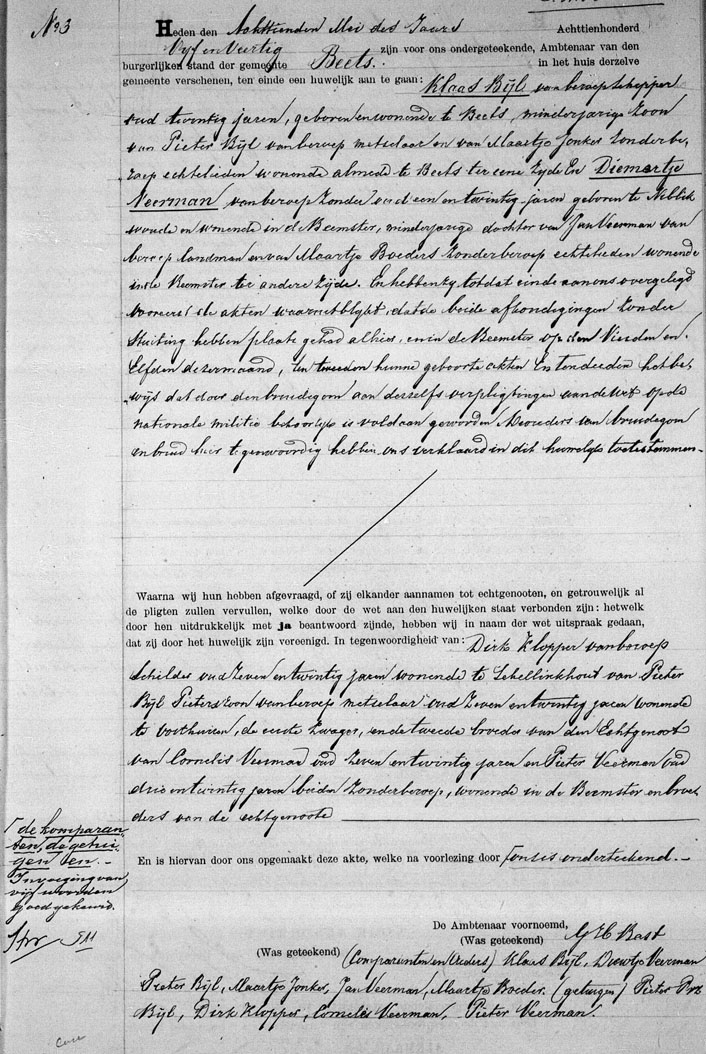 No 3
Heden den Achttienden Mei des Jaars Achttienhonderd
Vijf en Veertig zijn voor ons ondergeteekende, Ambtenaar van den
burgerlijken stand der gemeente Beets. in het huis derzelve
gemeente verschenen, ten einde een huwelijk aan te gaan:
Klaas Bijl van beroep schipper
oud twintig jaren, geboren en wonende te Beets, minderjarige Zoon
van Pieter Bijl van beroep metselaar en van Maartje Jonker Zonder be,
roep echtelieden wonende almede te Beets ter eene zyde En Diewertje
Neerman van beroep Zonder oud een en twintig jaren geboren te Nibbik
woude en wonende in de Beemster, minderjarige dochter van Jan Veerman van
beroep landman en van Maartje Boeders Zonder beroep echtelieden wonende
in de Beemster ter andere zijde. En hebben zy tot dat einde aan ons overgelegd
vooreerst de akten waaruit blykt, dat de beide afkondigingen Zonder
Stuiting hebben plaats gehad alhier en in de Beemster op den Vierden en
Elfden dezer maand, ten tweeden hunne geboorte akten En ten derden het be,
wijs dat door den bruidegom aan deszelfs verpligtingen aan de Wet op de
nationale militie behoorlyk is voldaan geworden de ouders van bruidegom
en bruid hier tegenwoordig hebben ons verklaard in dit huwelyk toetestemmen.
Waarna wij hun hebben afgevraagd, of zij elkander aannamen tot echtgenooten, en getrouwelijk al
de pligten zullen vervullen, welke door de wet aan den huwelijken staat verbonden zijn: hetwelk
door hen uitdrukkelijk met ja beantwoord zijnde, hebben wij in naam der wet uitspraak gedaan,
dat zij door het huwelijk zijn vereenigd. In tegenwoordigheid van: Dirk Klopper van beroep
Schilder oud Zeven en twintig jaren wonende te Schellinkhout van Pieter
Bijl Pieterszoon van beroep metselaar oud Zeven en twintig jaren wonende
te Oosthuizen, de eerste Zwager, en de tweede broeder van den Echtgenoot
van Cornelis Veerman oud Zeven en twintig jaren en Pieter Veerman oud
drie en twintig jaren beiden Zonder beroep, wonende in de Beemster en broe,
ders van de echtgenoote
En is hiervan door ons opgemaakt deze akte, welke na voorlezing door ons is onderteekend.
de komparan-
ten, de getui-
gen en.
Invoeging van
vijf woorden
goedgekeurd.
De Ambtenaar voornoemd,
(Was geteekend) G H Bast
(Was geteekend) (Comparanten en Ouders) Klaas Bijl, Diewertje Veerman
Pieter Bijl, Maartje Jonker, Jan Veerman, Maartje Boeder. (getuigen) Pieter Prz
Bijl, Dirk Klopper, Cornelis Veerman, Pieter Veerman.